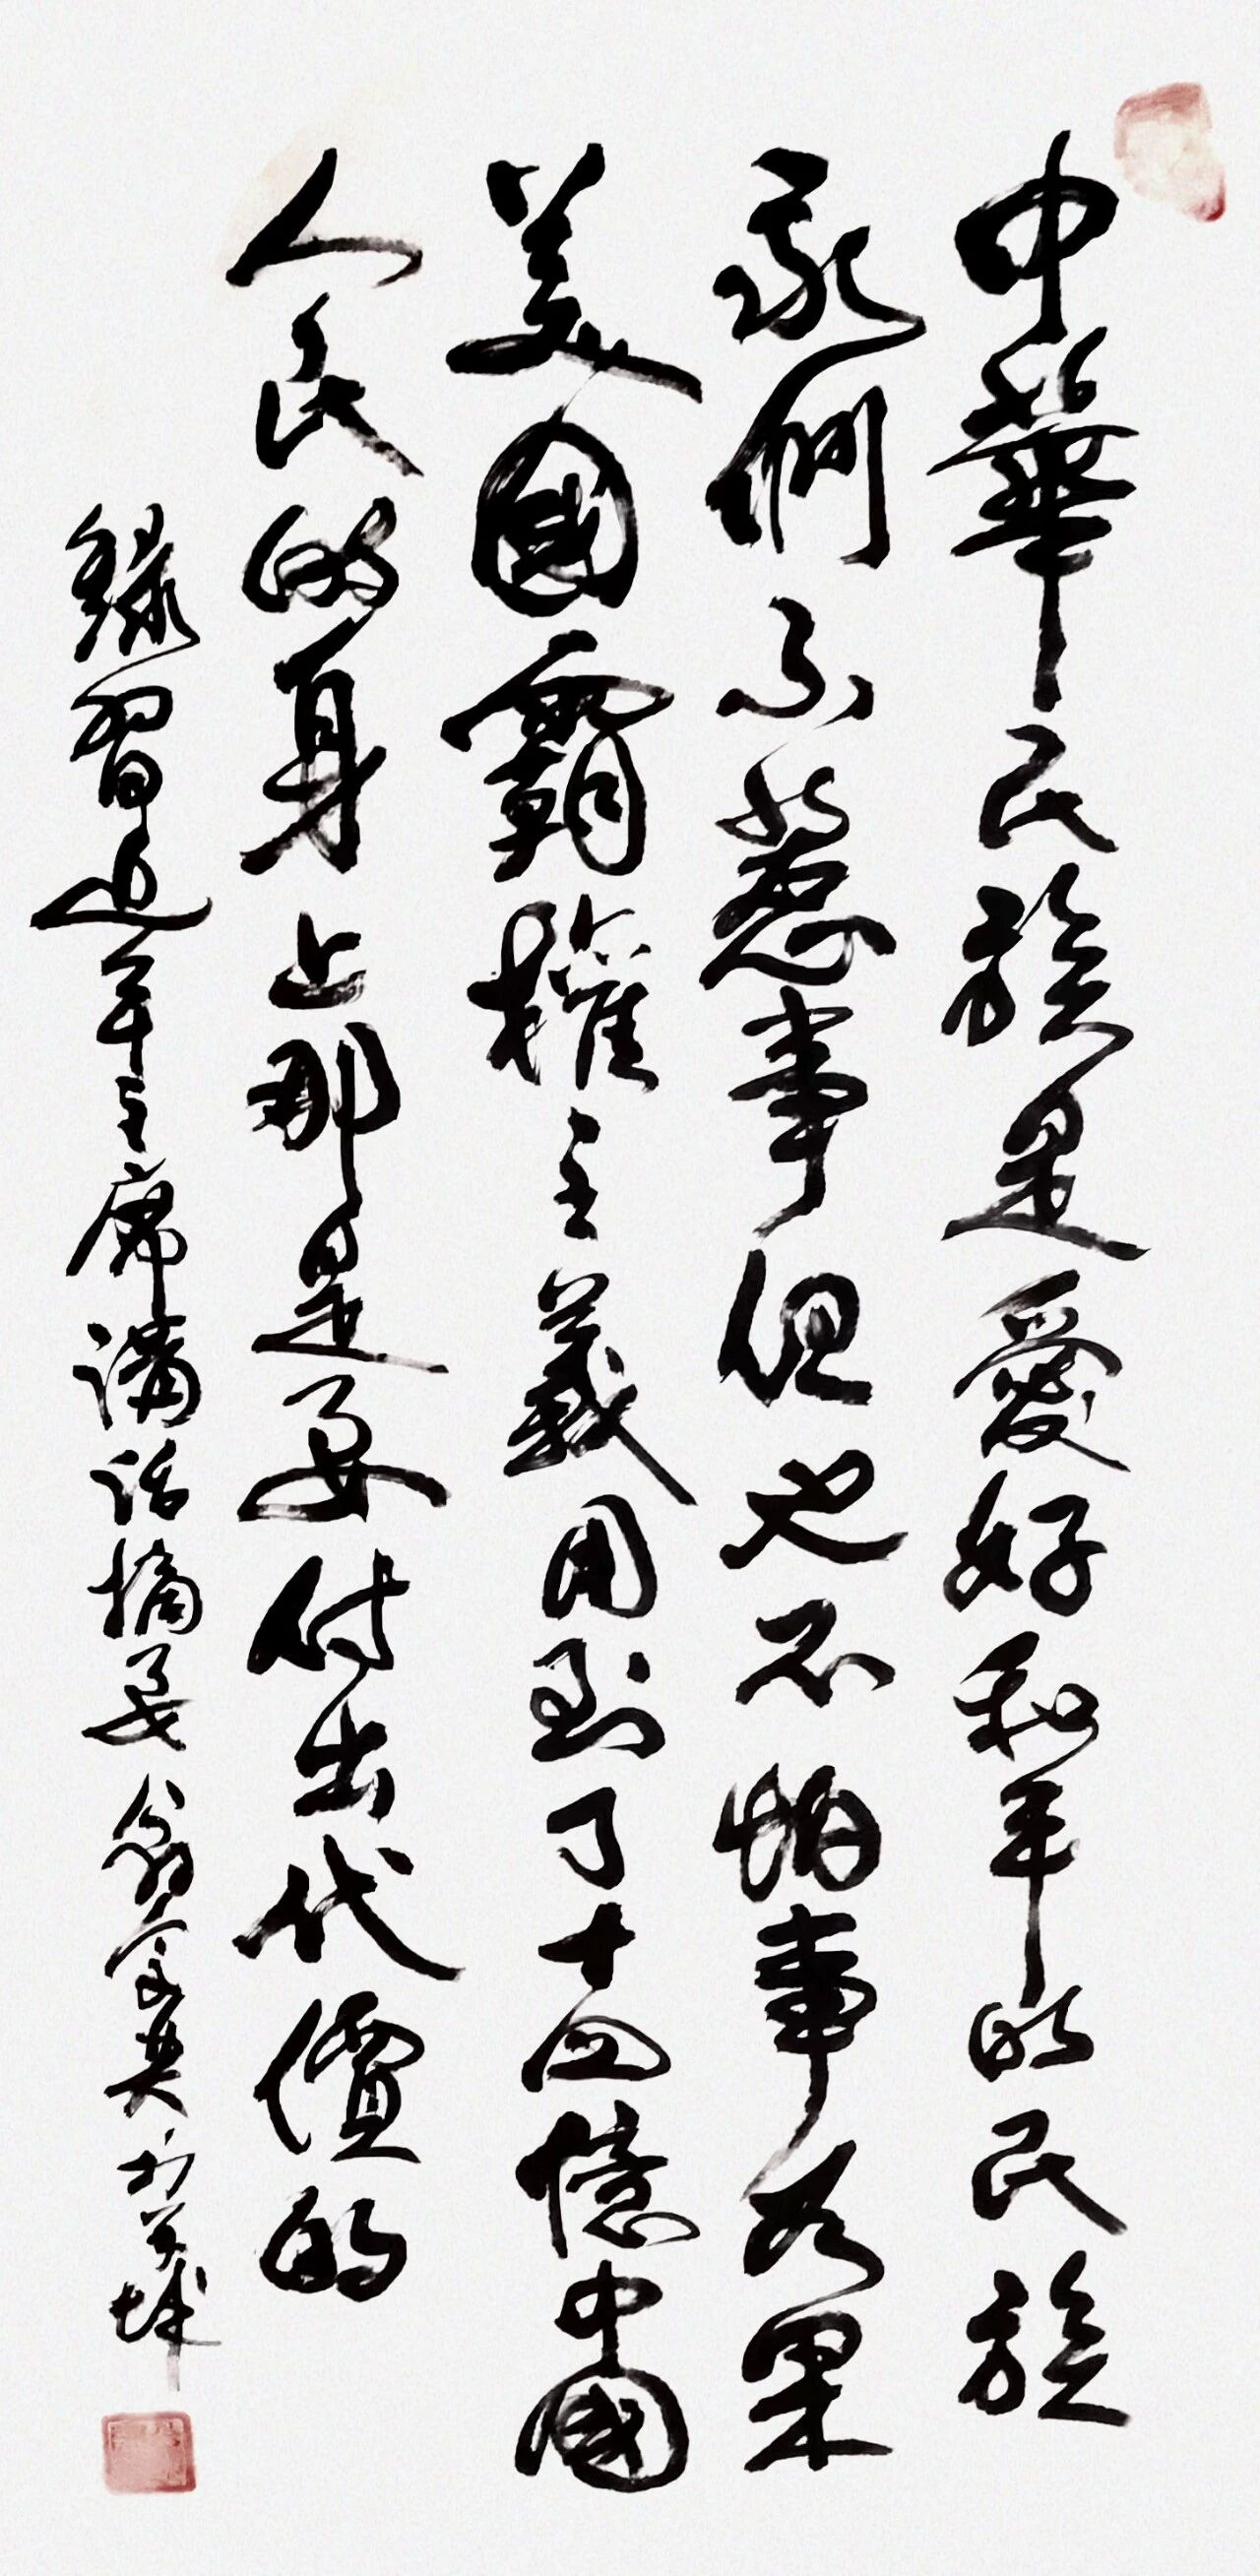 中華民族是愛好和平的民族
我們不惹事但也不怕事如果
美國霸權主義用到了十四憶中國
人民的身上那是要付出代價的
錄習近平主席講話摘要 翁文央 於羊城